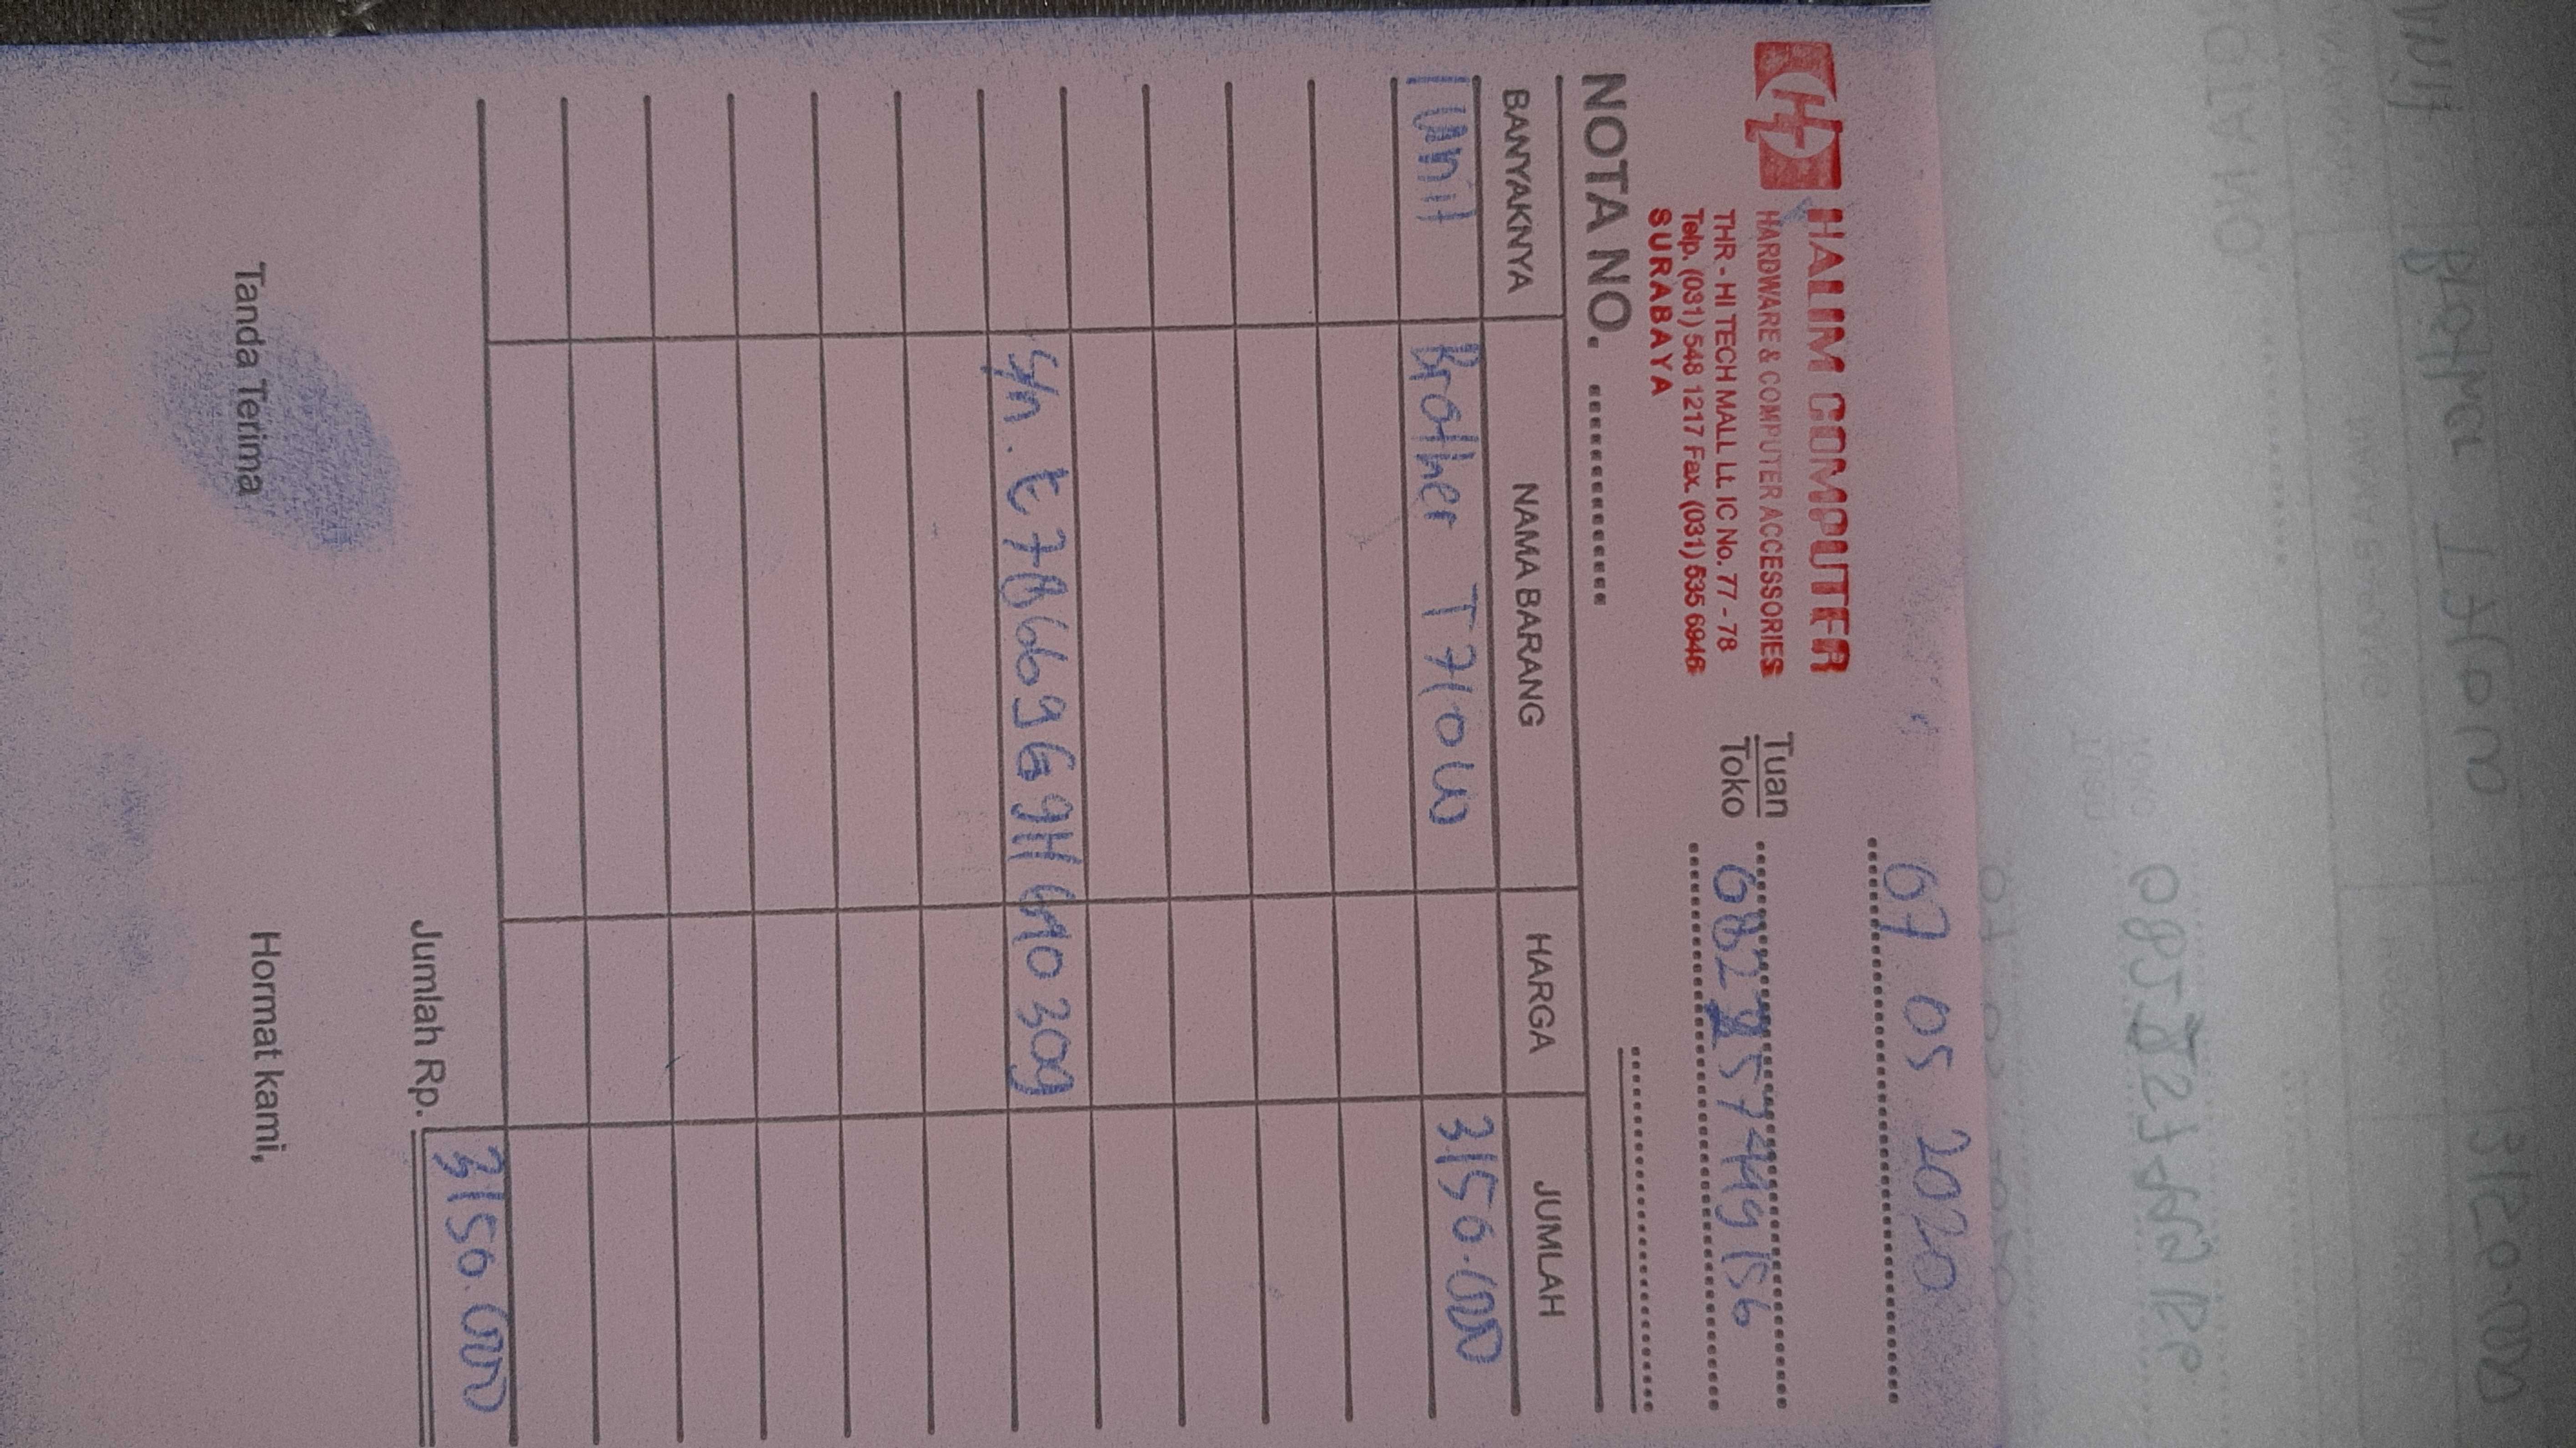 07 05 2020
HALIM COMPUTER
HARDWARE & COMPUTER ACCESSORIES
THR - HI TECH MALL Lt. IC No. 77 - 78
Telp. (031) 548 1217 Fax. (031) 535 6946
SURABAYA
Tuan
Toko
NOTA NO. ............
BANYAKNYA NAMA BARANG HARGA JUMLAH
1 unit Brother T710W 3150.000
S/n.
Jumlah Rp. 3150.000
Tanda Terima Hormat kami,